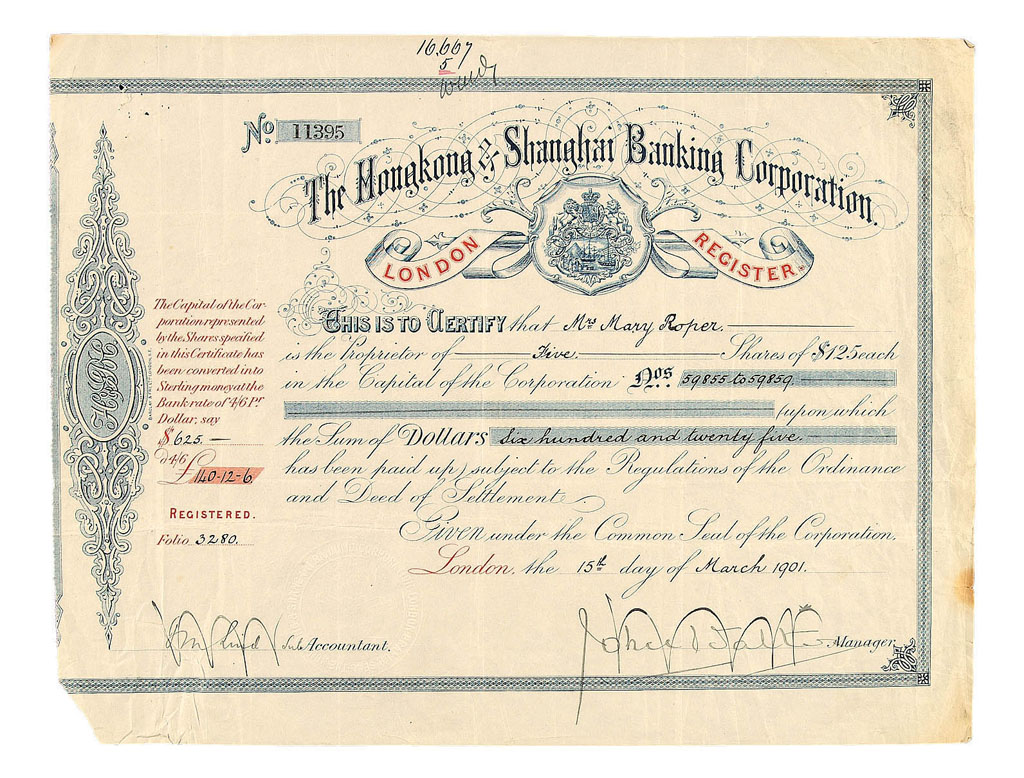 16,667
5
No. 11395
The Hongkong & Shanghai Banking Corporation.
LONDON REGISTER.
The Capital of the Cor-
poration represented
by the Shares specified
in this Certificate has
been converted into
Sterling money at the
Bank rate of 4/6 Pr
Dollar, say
$625.—
@ 4/6
£140-12-6
REGISTERED.
Folio 3280.
THIS IS TO CERTIFY that Mrs Mary Roper.
is the Proprietor of Five. Shares of $125 each
in the Capital of the Corporation Nos. 59855 to 59859.
(upon which
the Sum of Dollars Six hundred and twenty five.
has been paid up) subject to the Regulations of the Ordinance
and Deed of Settlement.
Given under the Common Seal of the Corporation.
London, the 15th day of March 1901.
Sub Accountant.
Manager.